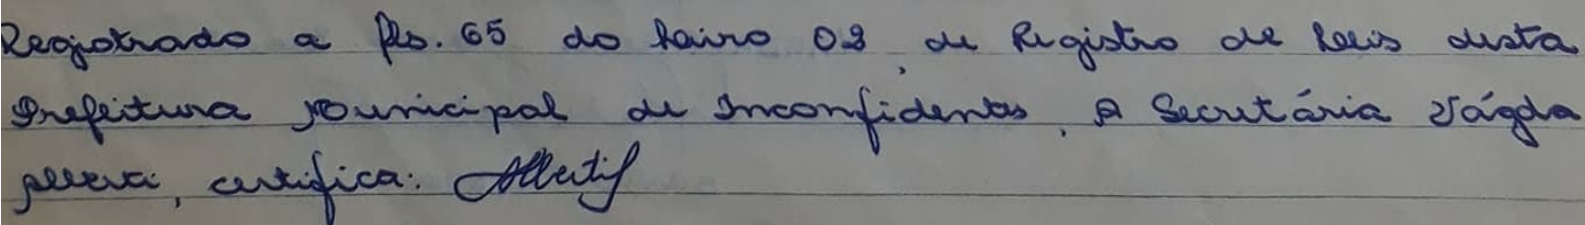 Registrado a fls. 65 do Livro 02, de Registro de Leis desta
Prefeitura Municipal de Inconfidentes. A Secretária Vágda
certifica: